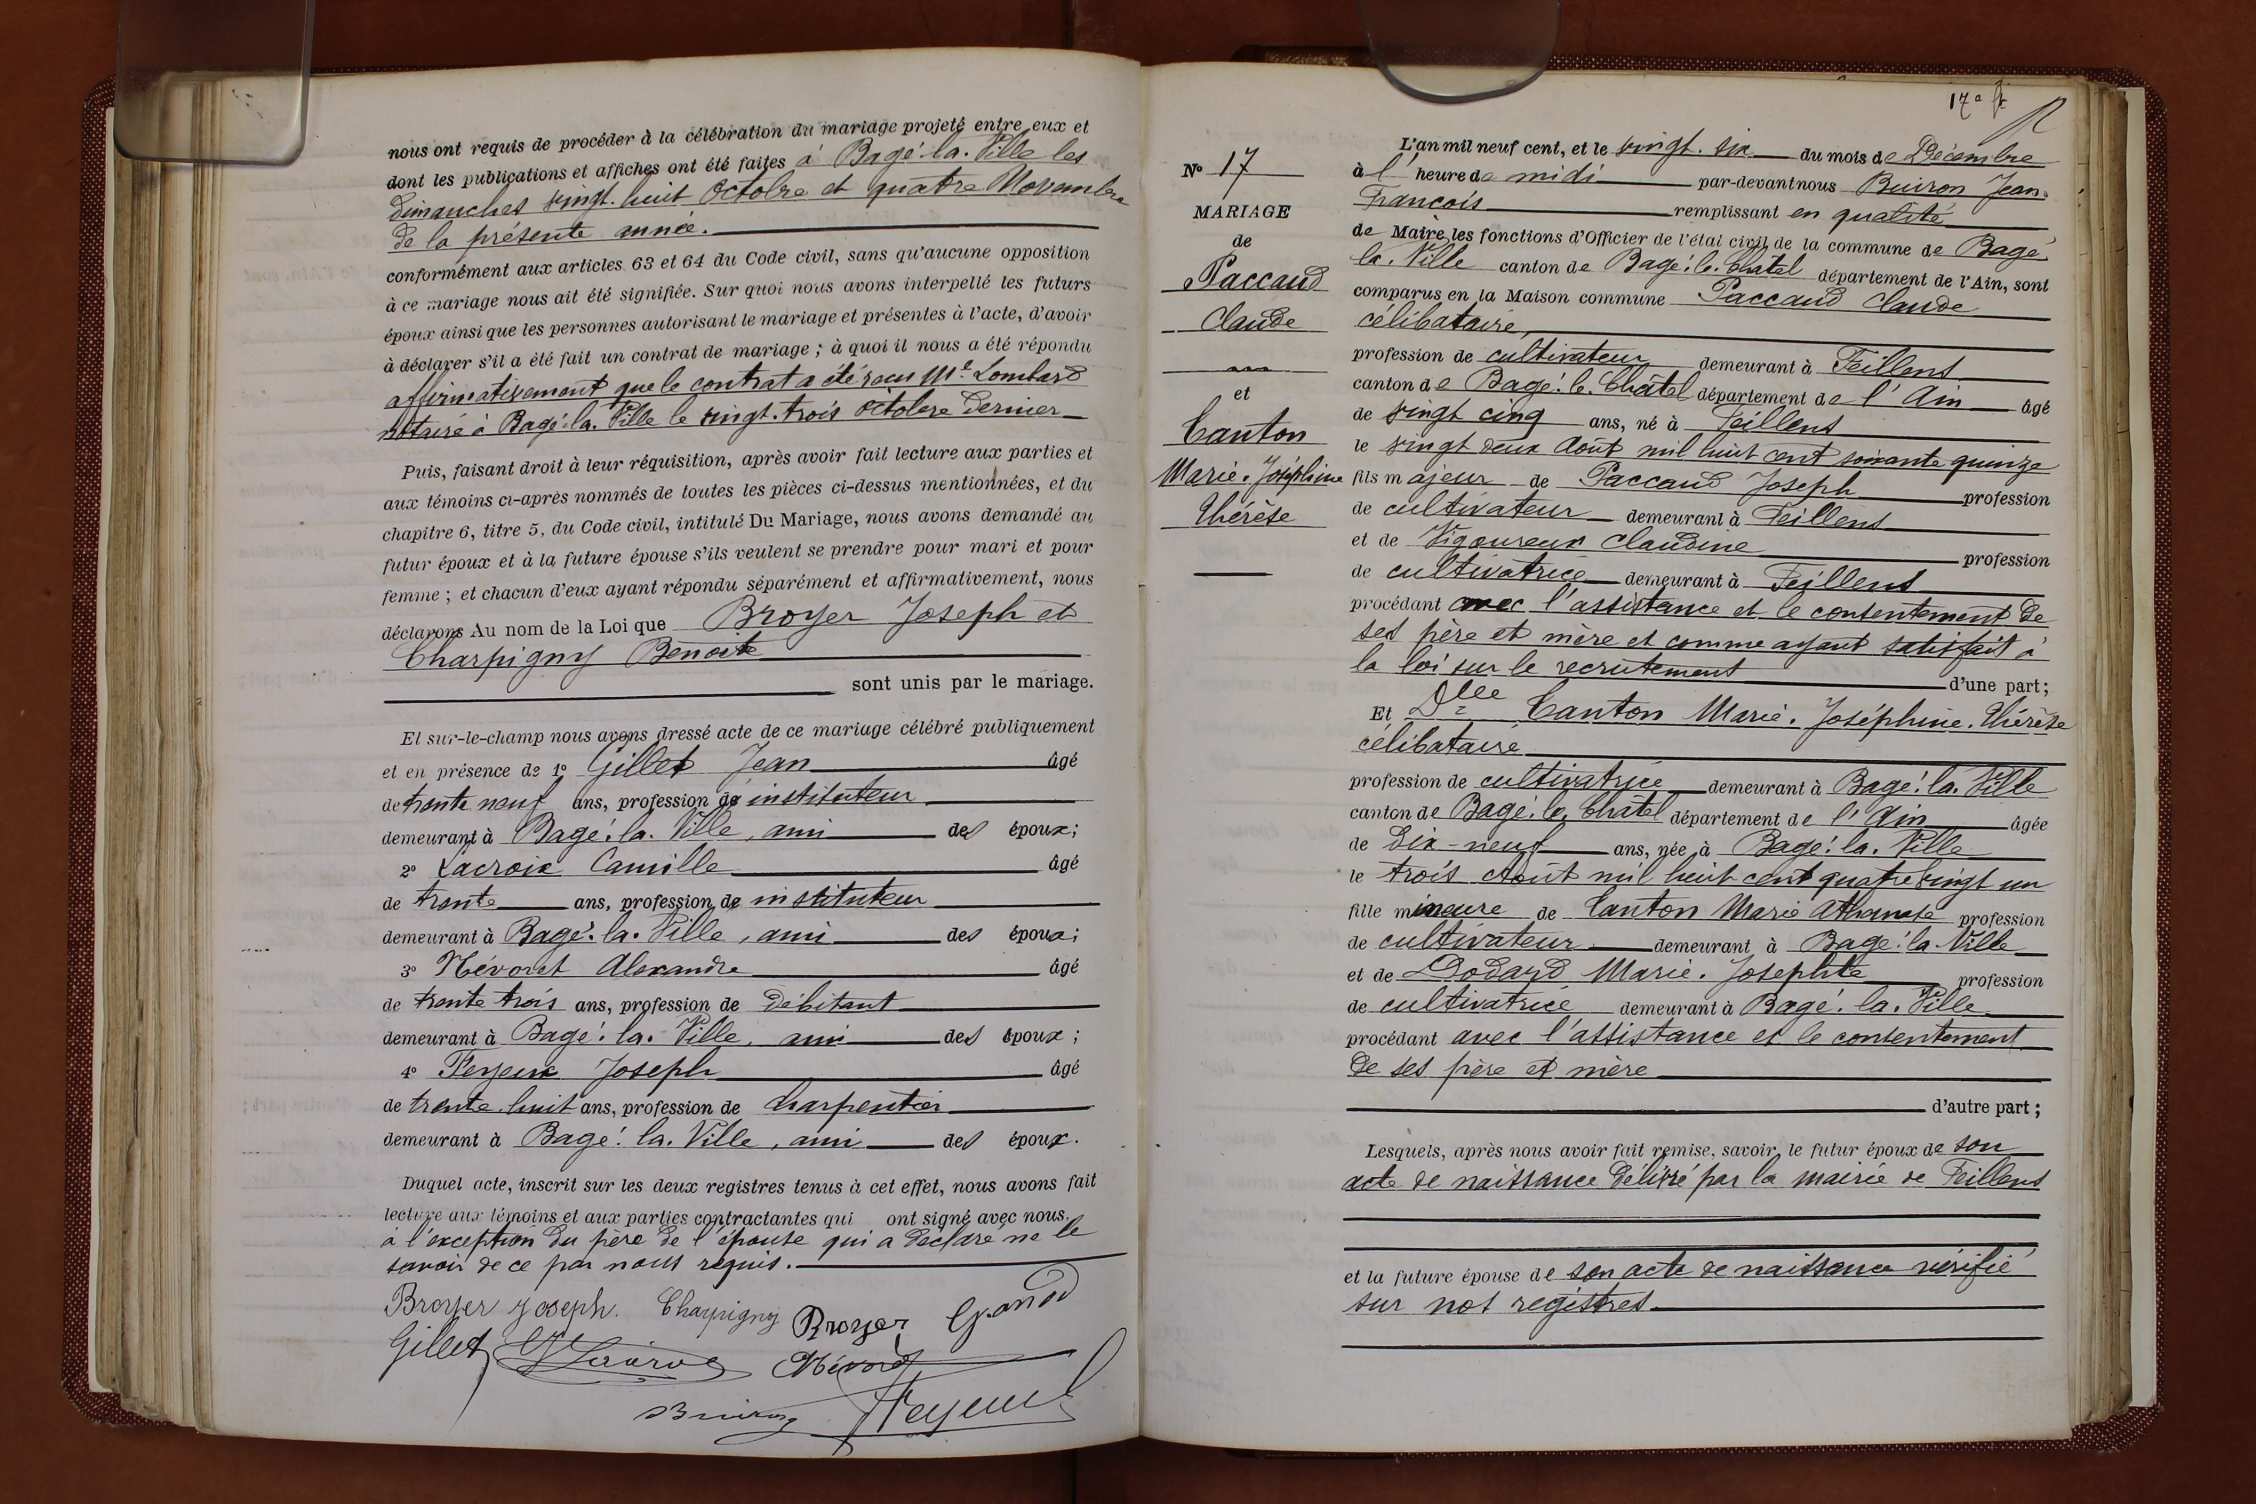 nous ont requis de procéder à la célébration du mariage projeté entre eux et
dont les publications et affiches ont été faites à Bagé-la-Ville les
dimanches vingt-huit Octobre et quatre Novembre
de la présente année.
conformément aux articles 63 et 64 du Code civil, sans qu'aucune opposition
à ce mariage nous ait été signifiée. Sur quoi nous avons interpellé les futurs
époux ainsi que les personnes autorisant le mariage et présentes à l'acte, d'avoir
à déclarer s'il a été fait un contrat de mariage ; à quoi il nous a été répondu
affirmativement que le contrat a été reçu Me Lombard
notaire à Bagé-la-Ville le vingt-trois octobre dernier
Puis, faisant droit à leur réquisition, après avoir fait lecture aux parties et
aux témoins ci-après nommés de toutes les pièces ci-dessus mentionnées, et du
chapitre 6, titre 5, du Code civil, intitulé Du Mariage, nous avons demandé au
futur époux et à la future épouse s'ils veulent se prendre pour mari et pour
femme ; et chacun d'eux ayant répondu séparément et affirmativement, nous
déclarons Au nom de la Loi que Broyer Joseph et
Charpigny Benoite
sont unis par le mariage.
Et sur-le-champ nous avons dressé acte de ce mariage célébré publiquement
et en présence de 1° Gillet Jean âgé
de trente neuf ans, profession de instituteur
demeurant à Bagé-la-Ville, ami des époux ;
2° Lacroix Camille âgé
de trente ans, profession de instituteur
demeurant à Bagé-la-Ville, ami des époux ;
3° Névoret Alexandre âgé
de trente trois ans, profession de débitant
demeurant à Bagé-la-Ville, ami des époux ;
4° Feyeux Joseph âgé
de trente-huit ans, profession de charpentier
demeurant à Bagé-la-Ville, ami des époux.
Duquel acte, inscrit sur les deux registres tenus à cet effet, nous avons fait
lecture aux témoins et aux parties contractantes qui ont signé avec nous.
à l'exception du père de l'épouse qui a déclaré ne le
savoir de ce par nous requis.
Broyer Joseph. Charpigny Broyer
Gillet Lacroix Névoret
Buiron Feyeux
17
N° 17
MARIAGE
de
Paccaud
Claude
et
Canton
Marie-Joséphine
Thérèse
L'an mil neuf cent, et le vingt-six du mois de Décembre
à l'heure de midi par-devant nous Buiron Jean-
François remplissant en qualité
de Maire les fonctions d'Officier de l'état civil de la commune de Bagé-
la-Ville canton de Bagé-le-Châtel département de l'Ain, sont
comparus en la Maison commune Paccaud Claude
célibataire,
profession de cultivateur demeurant à Feillens
canton de Bagé-le-Châtel département de l'Ain âgé
de vingt cinq ans, né à Feillens
le vingt deux Août mil huit cent soixante quinze
fils majeur de Paccaud Joseph profession
de cultivateur demeurant à Feillens
et de Vigoureux Claudine profession
de cultivatrice demeurant à Feillens
procédant avec l'assistance et le consentement de
ses père et mère et comme ayant satisfait à
la loi sur le recrutement d'une part ;
Et Dlle Canton Marie-Joséphine-Thérèse
célibataire
profession de cultivatrice demeurant à Bagé-la-Ville
canton de Bagé-le-Châtel département de l'Ain âgée
de dix-neuf ans, née à Bagé-la-Ville
le trois Août mil huit cent quatre vingt un
fille mineure de Canton Marie Athanase profession
de cultivateur demeurant à Bagé-la-Ville
et de Dodard Marie-Josephte profession
de cultivatrice demeurant à Bagé-la-Ville
procédant avec l'assistance et le consentement
de ses père et mère
d'autre part ;
Lesquels, après nous avoir fait remise, savoir, le futur époux de son
acte de naissance délivré par la mairie de Feillens
et la future épouse de son acte de naissance vérifié
sur nos registres.